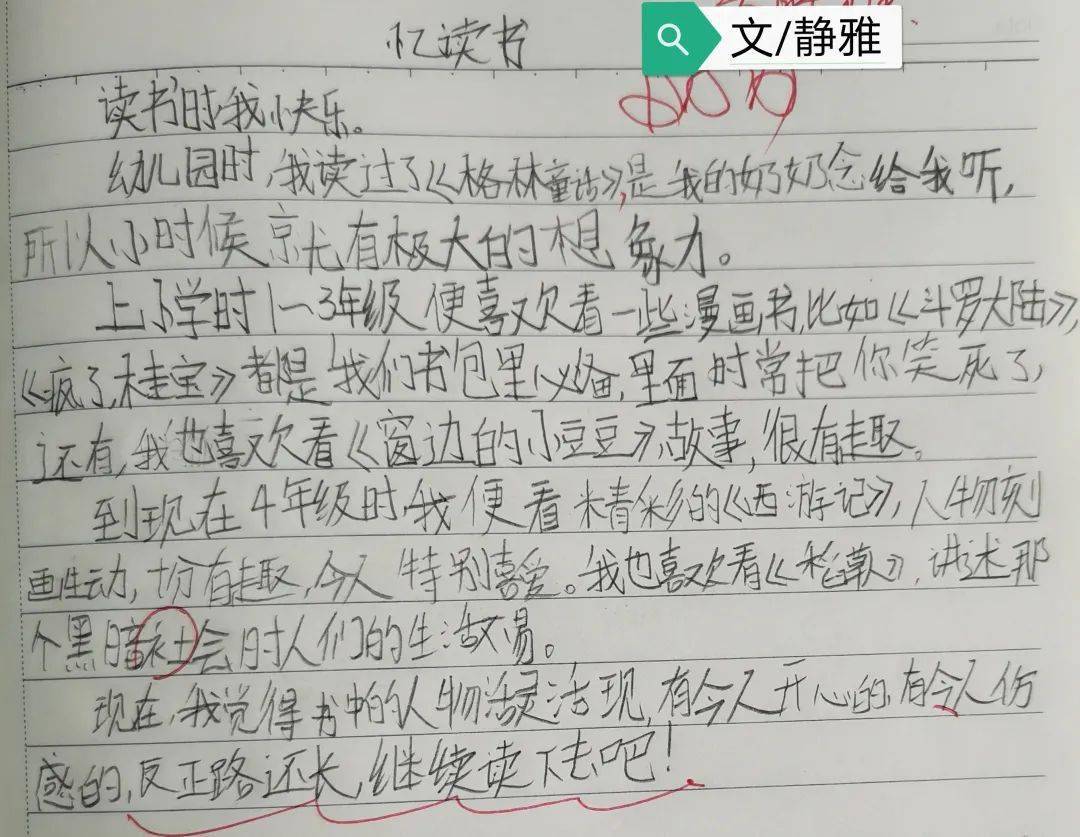 忆读书
文/静雅
读书时,我快乐。
幼儿园时,我读过了《格林童话》,是我的奶奶念给我听,
所以小时候就有极大的想象力。
上小学时1~3年级便喜欢看一些漫画书,比如《斗罗大陆》,
《疯了,桂宝》都是我们书包里必备,里面时常把你笑死了,
还有,我也喜欢看《窗边的小豆豆》,故事,很有趣。
到现在4年级时,我便看精彩的《西游记》,人物刻
画生动,十分有趣,令人特别喜爱。我也喜欢看《》,讲述那
个黑暗社会时人们的生活不易。
现在,我觉得书中的人物活灵活现,有令人开心的,有令人伤
感的,反正路还长,继续读下去吧!